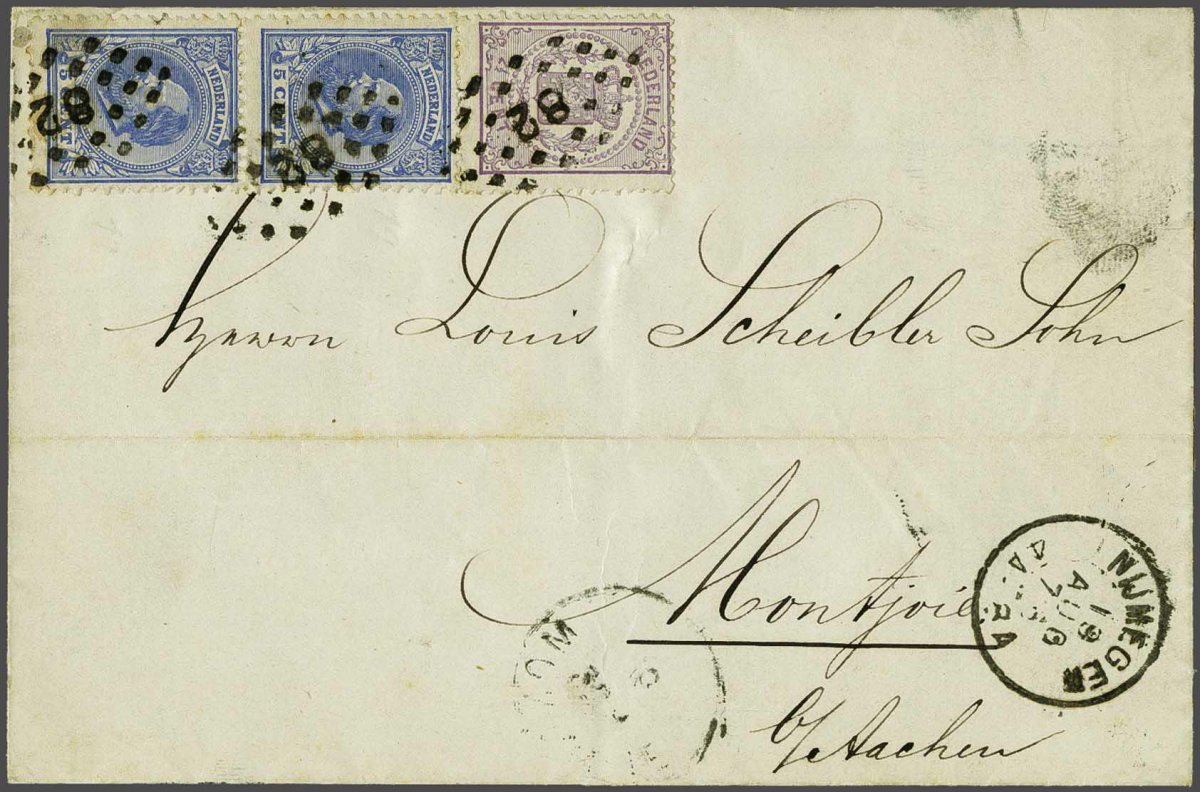 5 CENT NEDERLAND
5 CENT NEDERLAND
NEDERLAND
82
82
82
Herrn Louis Scheibler Sohn
Montjoie
b/Aachen
NIJMEGEN
19
AUG